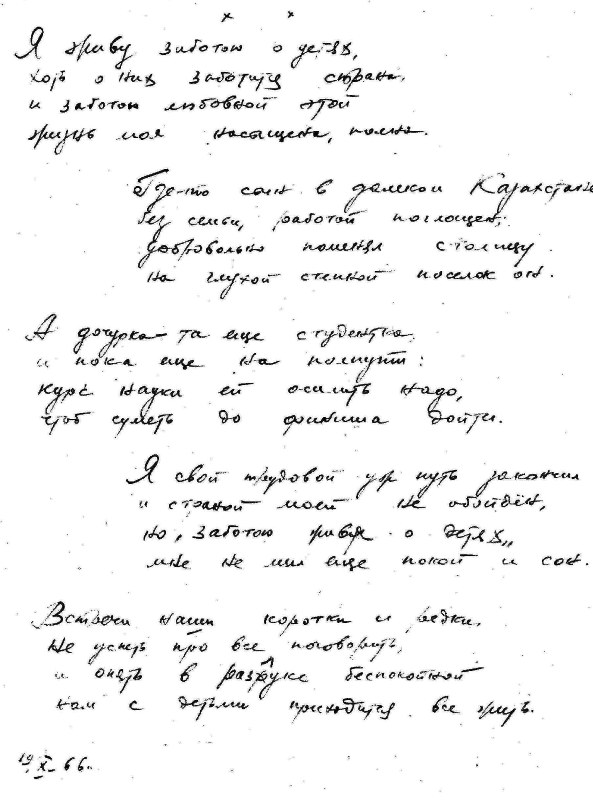 х х
Я живу заботою о детях,
хоть о них заботится страна.
и заботою любовной этой
жизнь моя насыщена, полна.
Где-то сын в далеком Казахстане
без семьи, работой поглощен;
добровольно поменял столицу
на глухой степной поселок он.
А дочурка-та еще студентка,
и пока еще на полпути:
курс науки ей осилить надо,
чтоб суметь до финиша дойти.
Я свой трудовой уж путь закончил
и страной моей не обойдён,
но, заботою живя о детях,
мне не мил еще покой и сон.
Встречи наши коротки и редки.
Не успеть про все поговорить,
и опять в разлуке беспокойной
нам с детьми приходится все жить.
19/X-66.